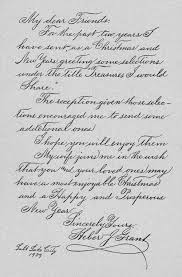 My dear Friends:
For the past two years I
have sent as a Christmas and
New Years greeting some selections
under the title Treasures I would
Share.
The reception given those selec-
tions encouraged me to send some
additional ones
I hope you will enjoy them
My wife joins me in the wish
that you and your loved ones may
have a most enjoyable Christmas
and a Happy and Prosperous
New Year.
Sincerely Yours,
Heber J. Grant
Salt Lake City